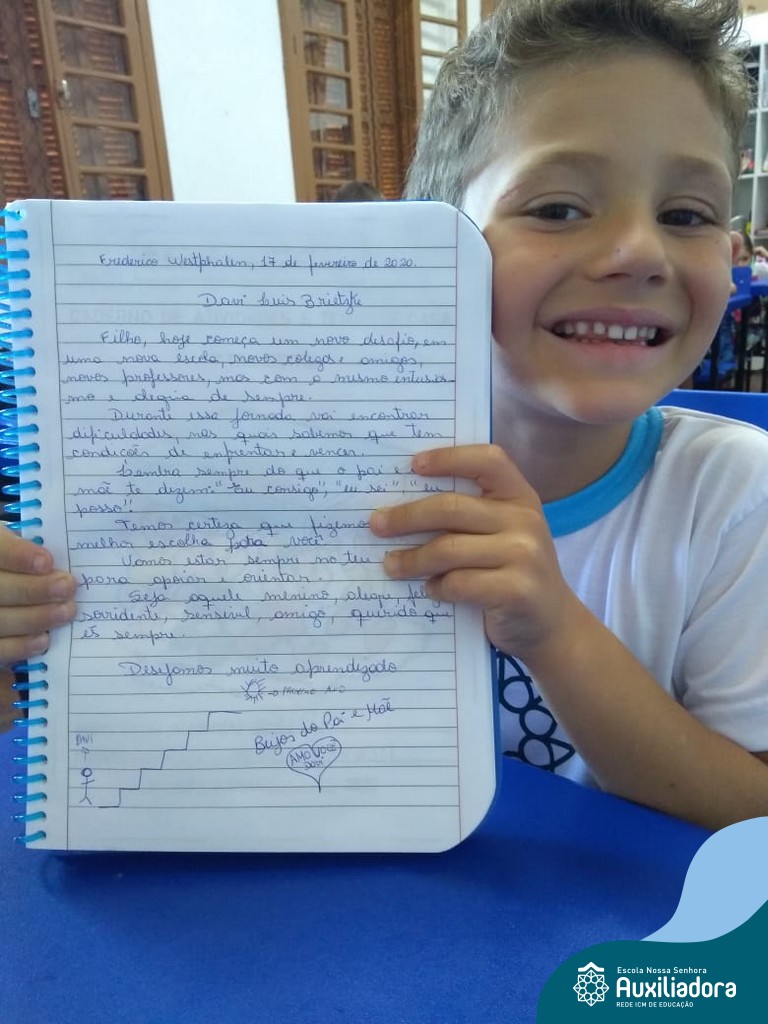 Frederico Westphalen, 17 de fevereiro de 2020.
Davi Luis Brietzke
Filho, hoje começa um novo desafio, em
uma nova escola, novos colegas e amigos,
novos professores, mas com o mesmo entusias-
mo e alegria de sempre.
Durante essa jornada vai encontrar
dificuldades, nas quais sabemos que tem
condições de enfrentar e vencer.
Lembra sempre do que o pai e
mãe te dizem: "Eu consigo", "eu sei", "eu
posso"!
Temos certeza que fizemos
melhor escolha para você.
Vamos estar sempre no teu
para apoiar e orientar.
Seja aquele menino, alegre, feliz
sorridente, sensível, amigo, querido que
és sempre.
Desejamos muito aprendizado
Beijos do Pai e Mãe
DAVI
AMO VOCÊ
DAVI
Escola Nossa Senhora
Auxiliadora
REDE ICM DE EDUCAÇÃO